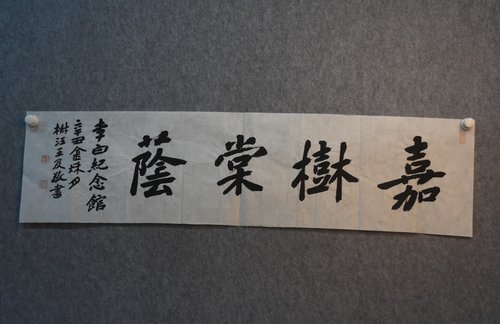 嘉樹棠蔭
李白紀念館
辛酉金秋月
樹江王友敬書